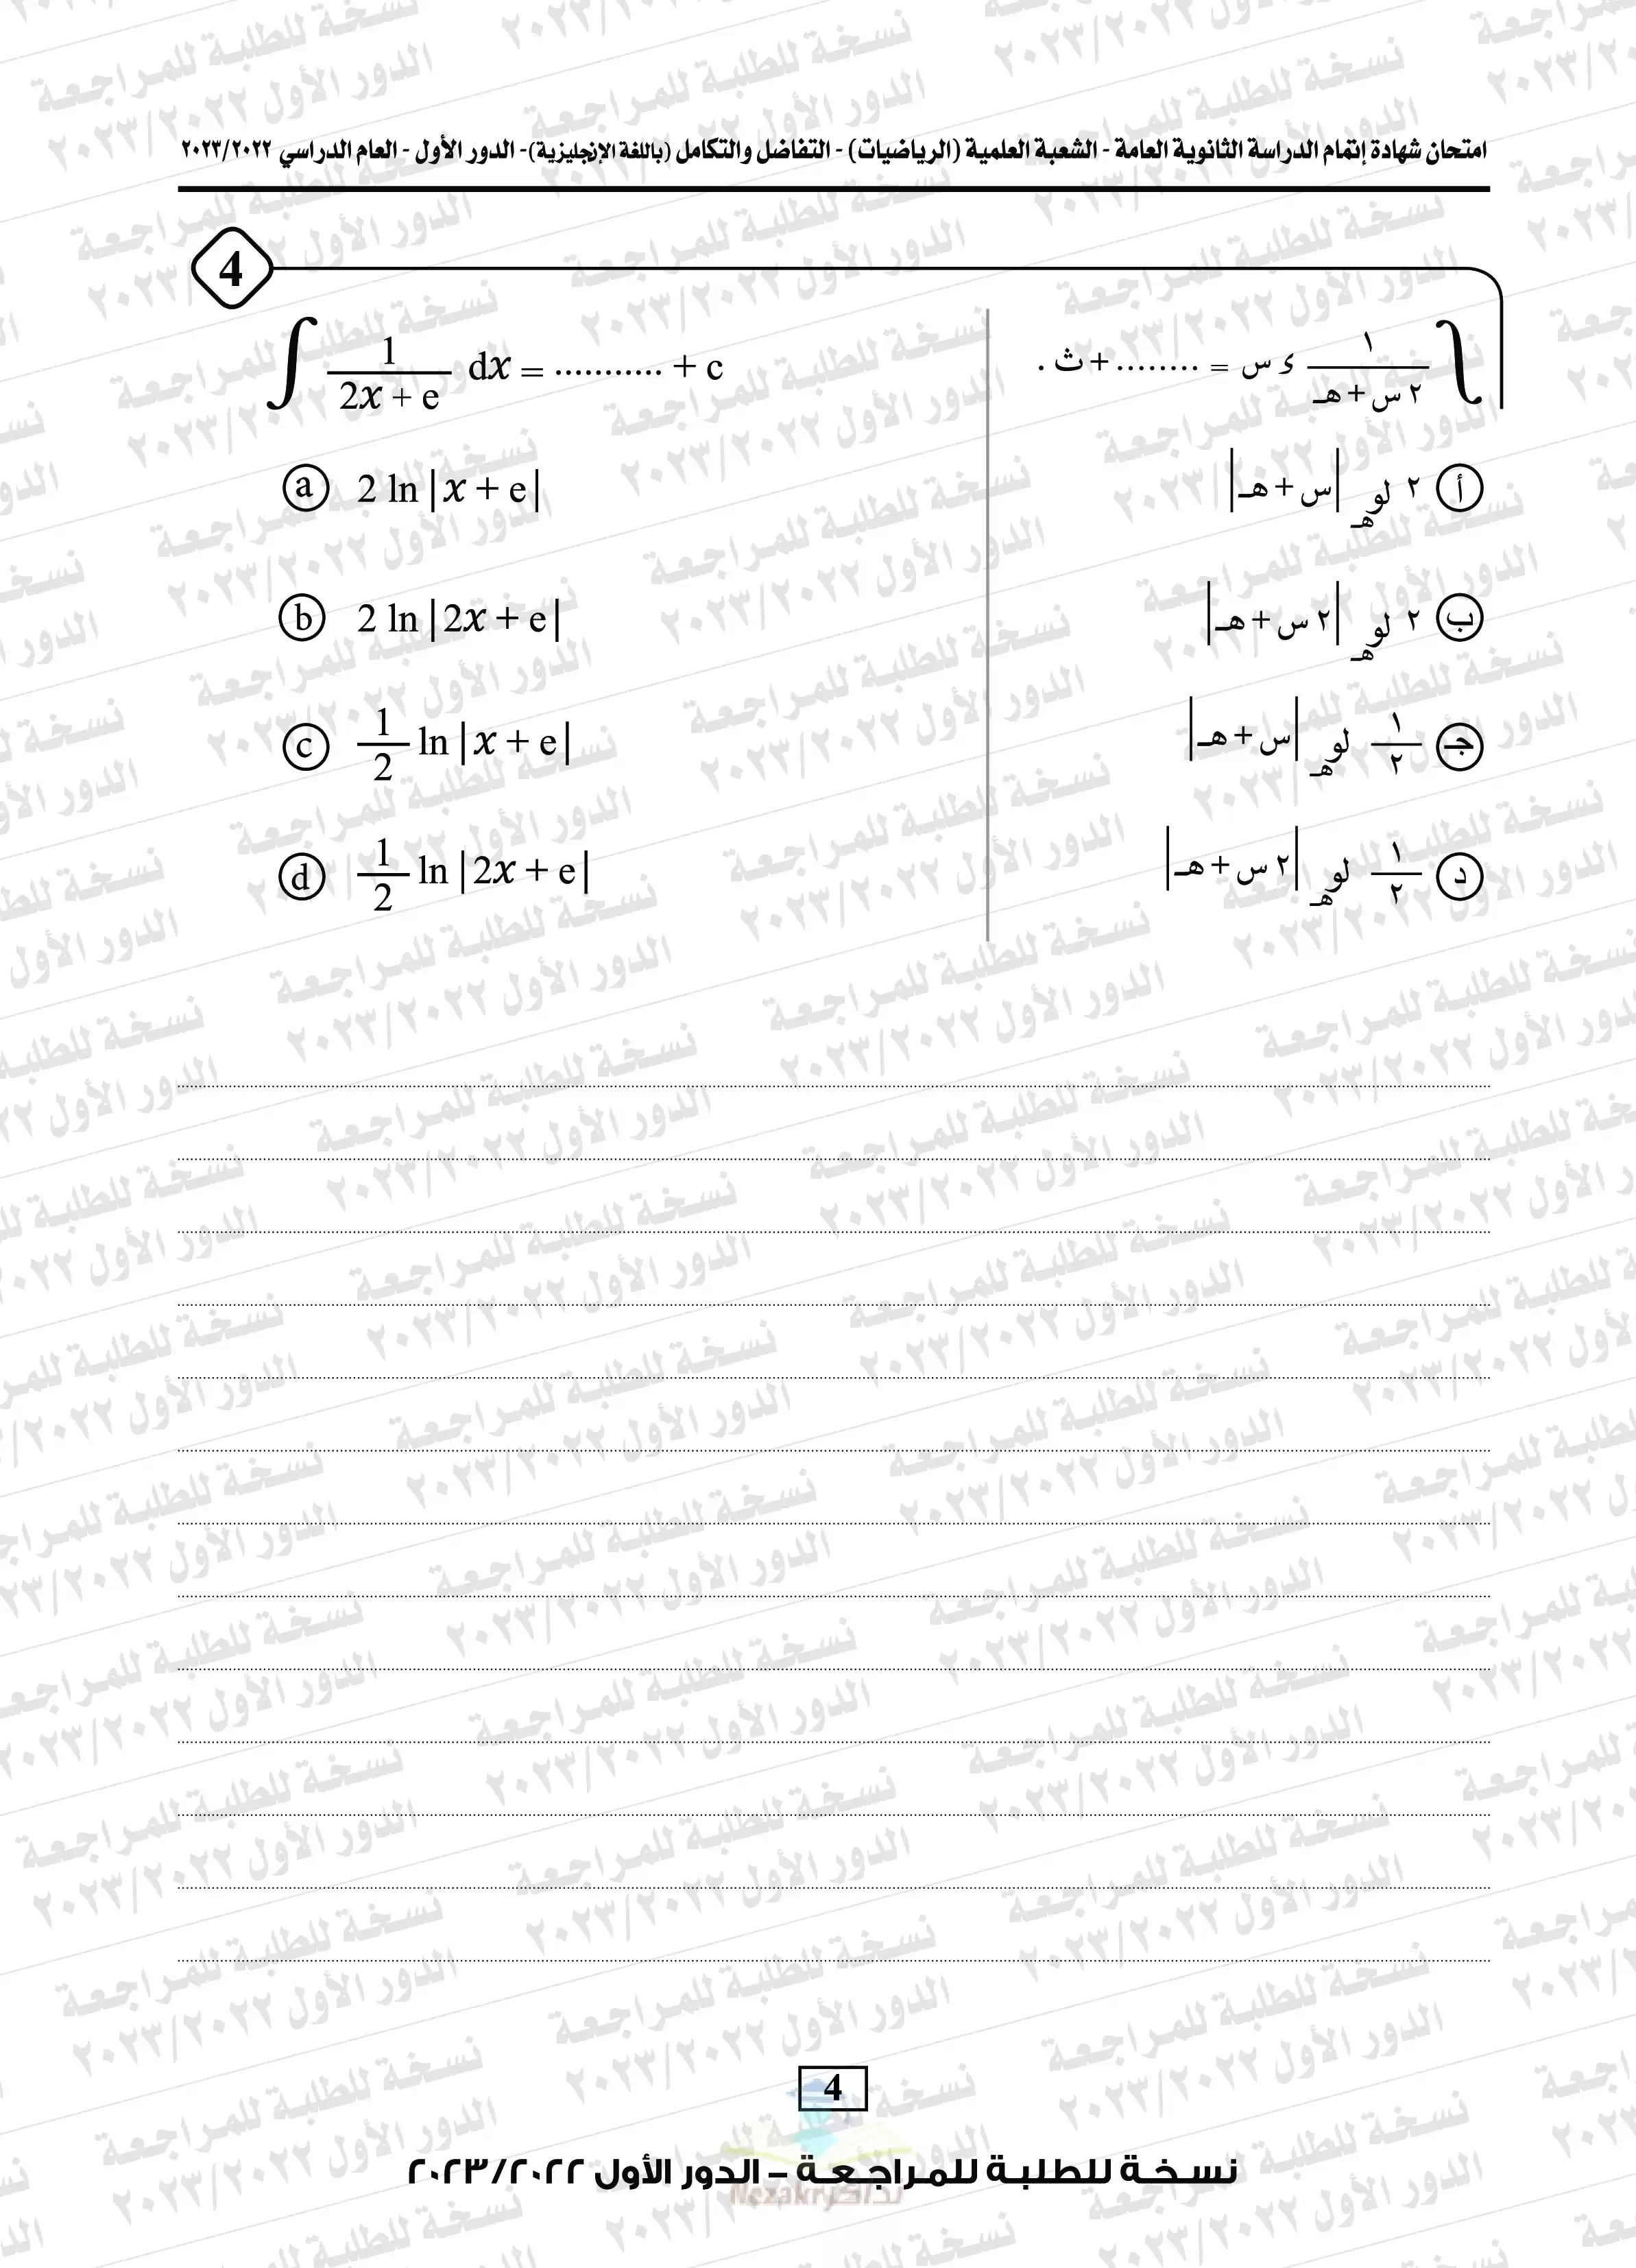 امتحان شهادة إتمام الدراسة الثانوية العامة - الشعبة العلمية (الرياضيات) - التفاضل والتكامل (باللغة الإنجليزية)- الدور الأول - العام الدراسي ٢٠٢٣/٢٠٢٢
4
∫ 1/(2x + e) dx = ........... + c
a 2 ln |x + e|
b 2 ln |2x + e|
c 1/2 ln |x + e|
d 1/2 ln |2x + e|
∫ ١/(٢ س + هـ) ء س = ........ + ث .
أ ٢ لو هـ |س + هـ|
ب ٢ لو هـ |٢ س + هـ|
جـ ١/٢ لو هـ |س + هـ|
د ١/٢ لو هـ |٢ س + هـ|
4
نسخة للطلبة للمراجعة – الدور الأول ٢٠٢٣/٢٠٢٢
نسخة للطلبة للمراجعة
الدور الأول ٢٠٢٣/٢٠٢٢